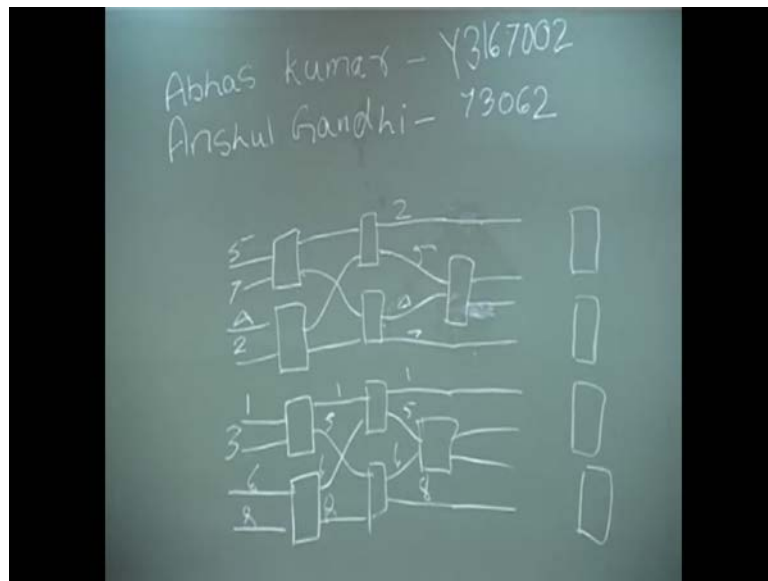 Abhas Kumar - Y3167002
Anshul Gandhi - Y3062
2
5
5
7
Δ
Δ
2
7
1
1
1
3
5
6
6
8